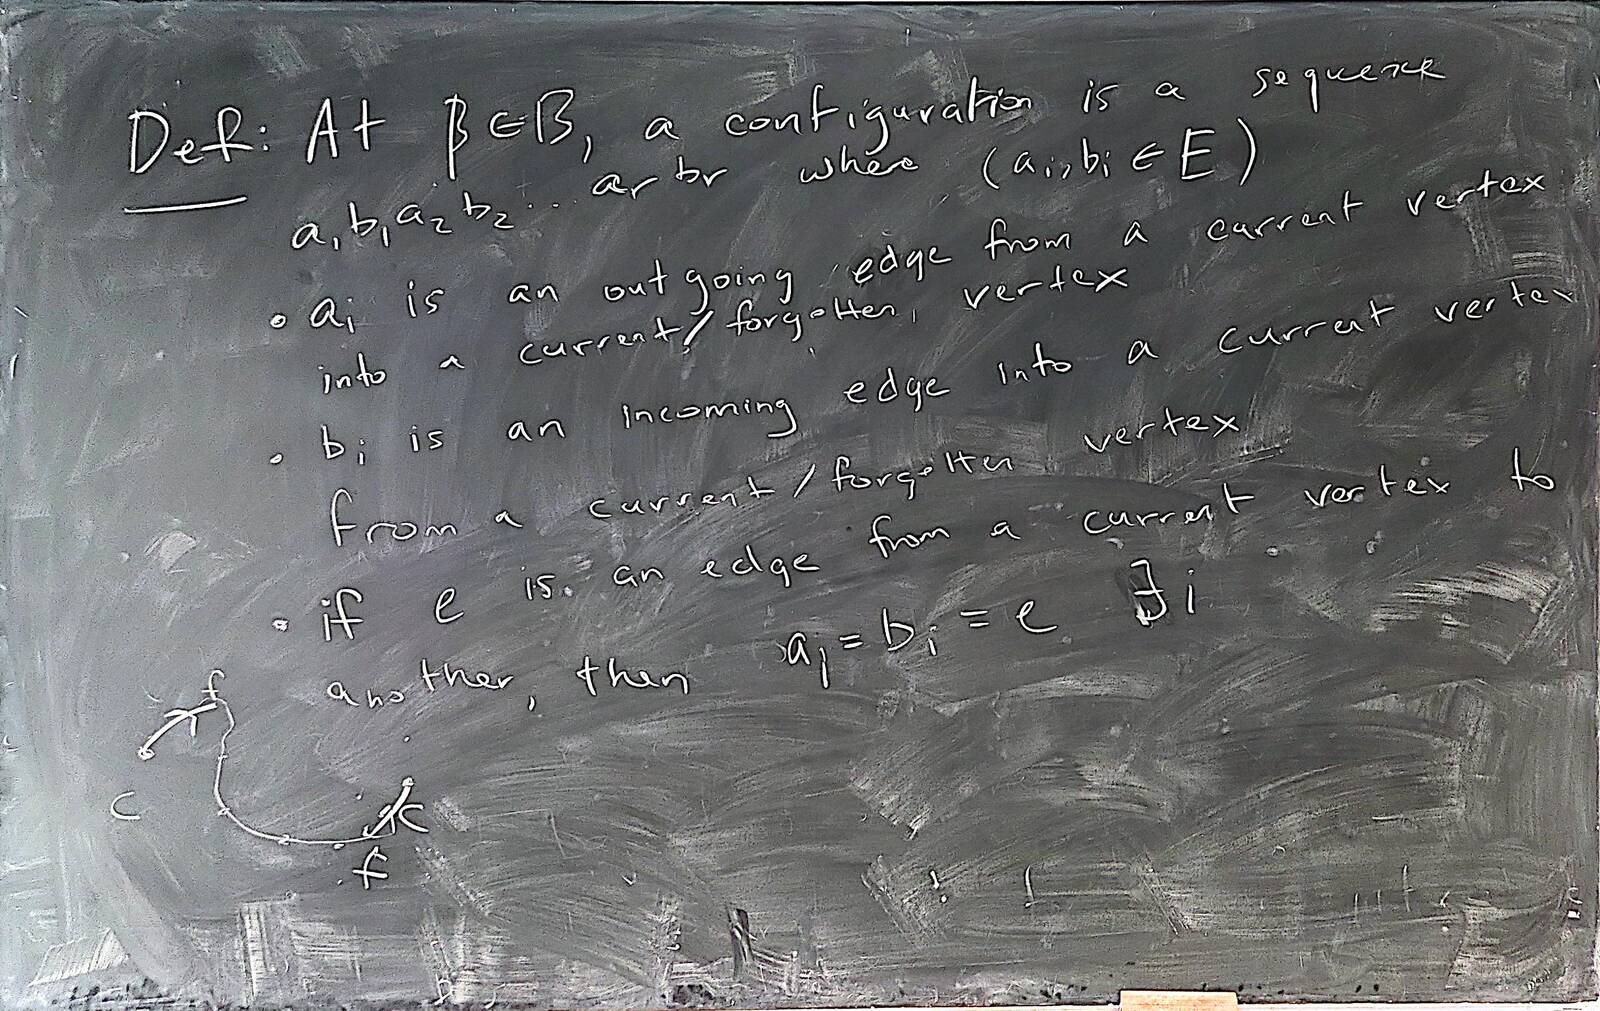 Def: At β∈B, a configuration is a sequence
a₁b₁a₂b₂... aᵣbᵣ where (aᵢ,bᵢ ∈ E)
• aᵢ is an outgoing edge from a current vertex
into a current/forgotten vertex
• bᵢ is an incoming edge into a current vertex
from a current/forgotten vertex
• if e is an edge from a current vertex to
another, then aᵢ = bᵢ = e ∃i
f
c
c
f